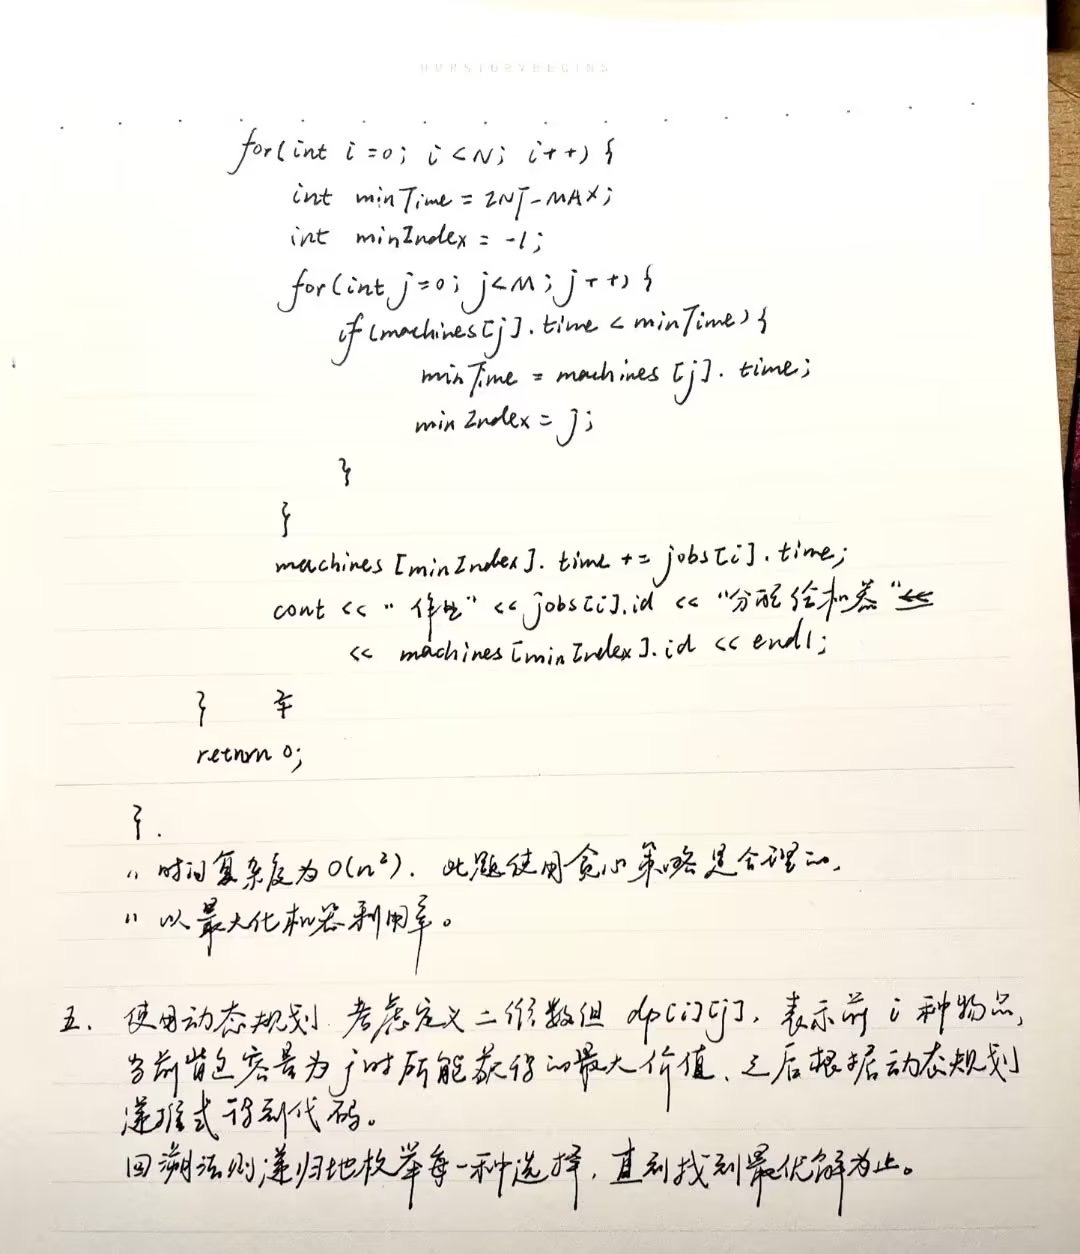 OURSTORYBEGINS
for(int i=0; i<N; i++) {
int minTime = INT_MAX;
int minIndex = -1;
for(int j=0; j<M; j++) {
if(machines[j].time < minTime) {
minTime = machines[j].time;
minIndex = j;
}
}
machines[minIndex].time += jobs[i].time;
cout << "作业" << jobs[i].id << "分配给机器"
<< machines[minIndex].id << endl;
}
return 0;
}.
时间复杂度为O(n²). 此题使用贪心策略是合理的,
以最大化机器利用率。
五. 使用动态规划 考虑定义二维数组 dp[i][j], 表示前 i 种物品,
当前背包容量为 j时所能获得的最大价值、之后根据动态规划
递推式得到代码。
回溯法则递归地枚举每一种选择, 直到找到最优解为止。